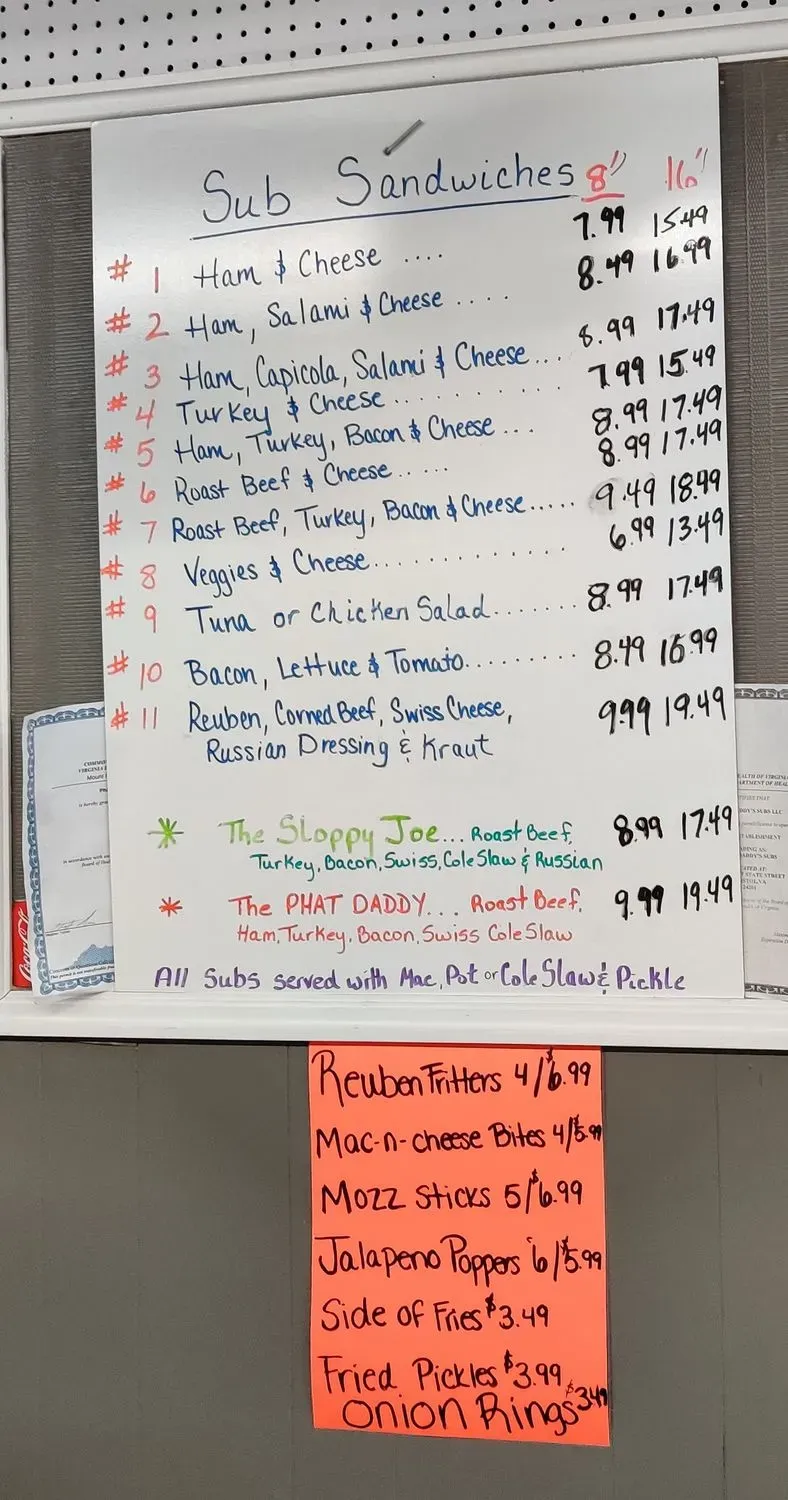 Sub Sandwiches 8" 16"
# 1 Ham & Cheese .... 7.99 15.49
# 2 Ham, Salami & Cheese .... 8.49 16.99
# 3 Ham, Capicola, Salami & Cheese... 8.99 17.49
# 4 Turkey & Cheese .......... 7.99 15.49
# 5 Ham, Turkey, Bacon & Cheese ... 8.99 17.49
# 6 Roast Beef & Cheese ..... 8.99 17.49
# 7 Roast Beef, Turkey, Bacon & Cheese..... 9.49 18.99
# 8 Veggies & Cheese............. 6.99 13.49
# 9 Tuna or Chicken Salad....... 8.99 17.49
# 10 Bacon, Lettuce & Tomato......... 8.49 16.99
# 11 Reuben, Corned Beef, Swiss Cheese, 9.99 19.49
Russian Dressing & Kraut
* The Sloppy Joe... Roast Beef, 8.99 17.49
Turkey, Bacon, Swiss, Cole Slaw & Russian
* The PHAT DADDY... Roast Beef, 9.99 19.49
Ham, Turkey, Bacon, Swiss Cole Slaw
All Subs served with Mac, Pot or Cole Slaw & Pickle
Reuben Fritters 4/$6.99
Mac-n-cheese Bites 4/$5.99
Mozz Sticks 5/$6.99
Jalapeno Poppers 6/$5.99
Side of Fries $3.49
Fried Pickles $3.99
Onion Rings $3.49